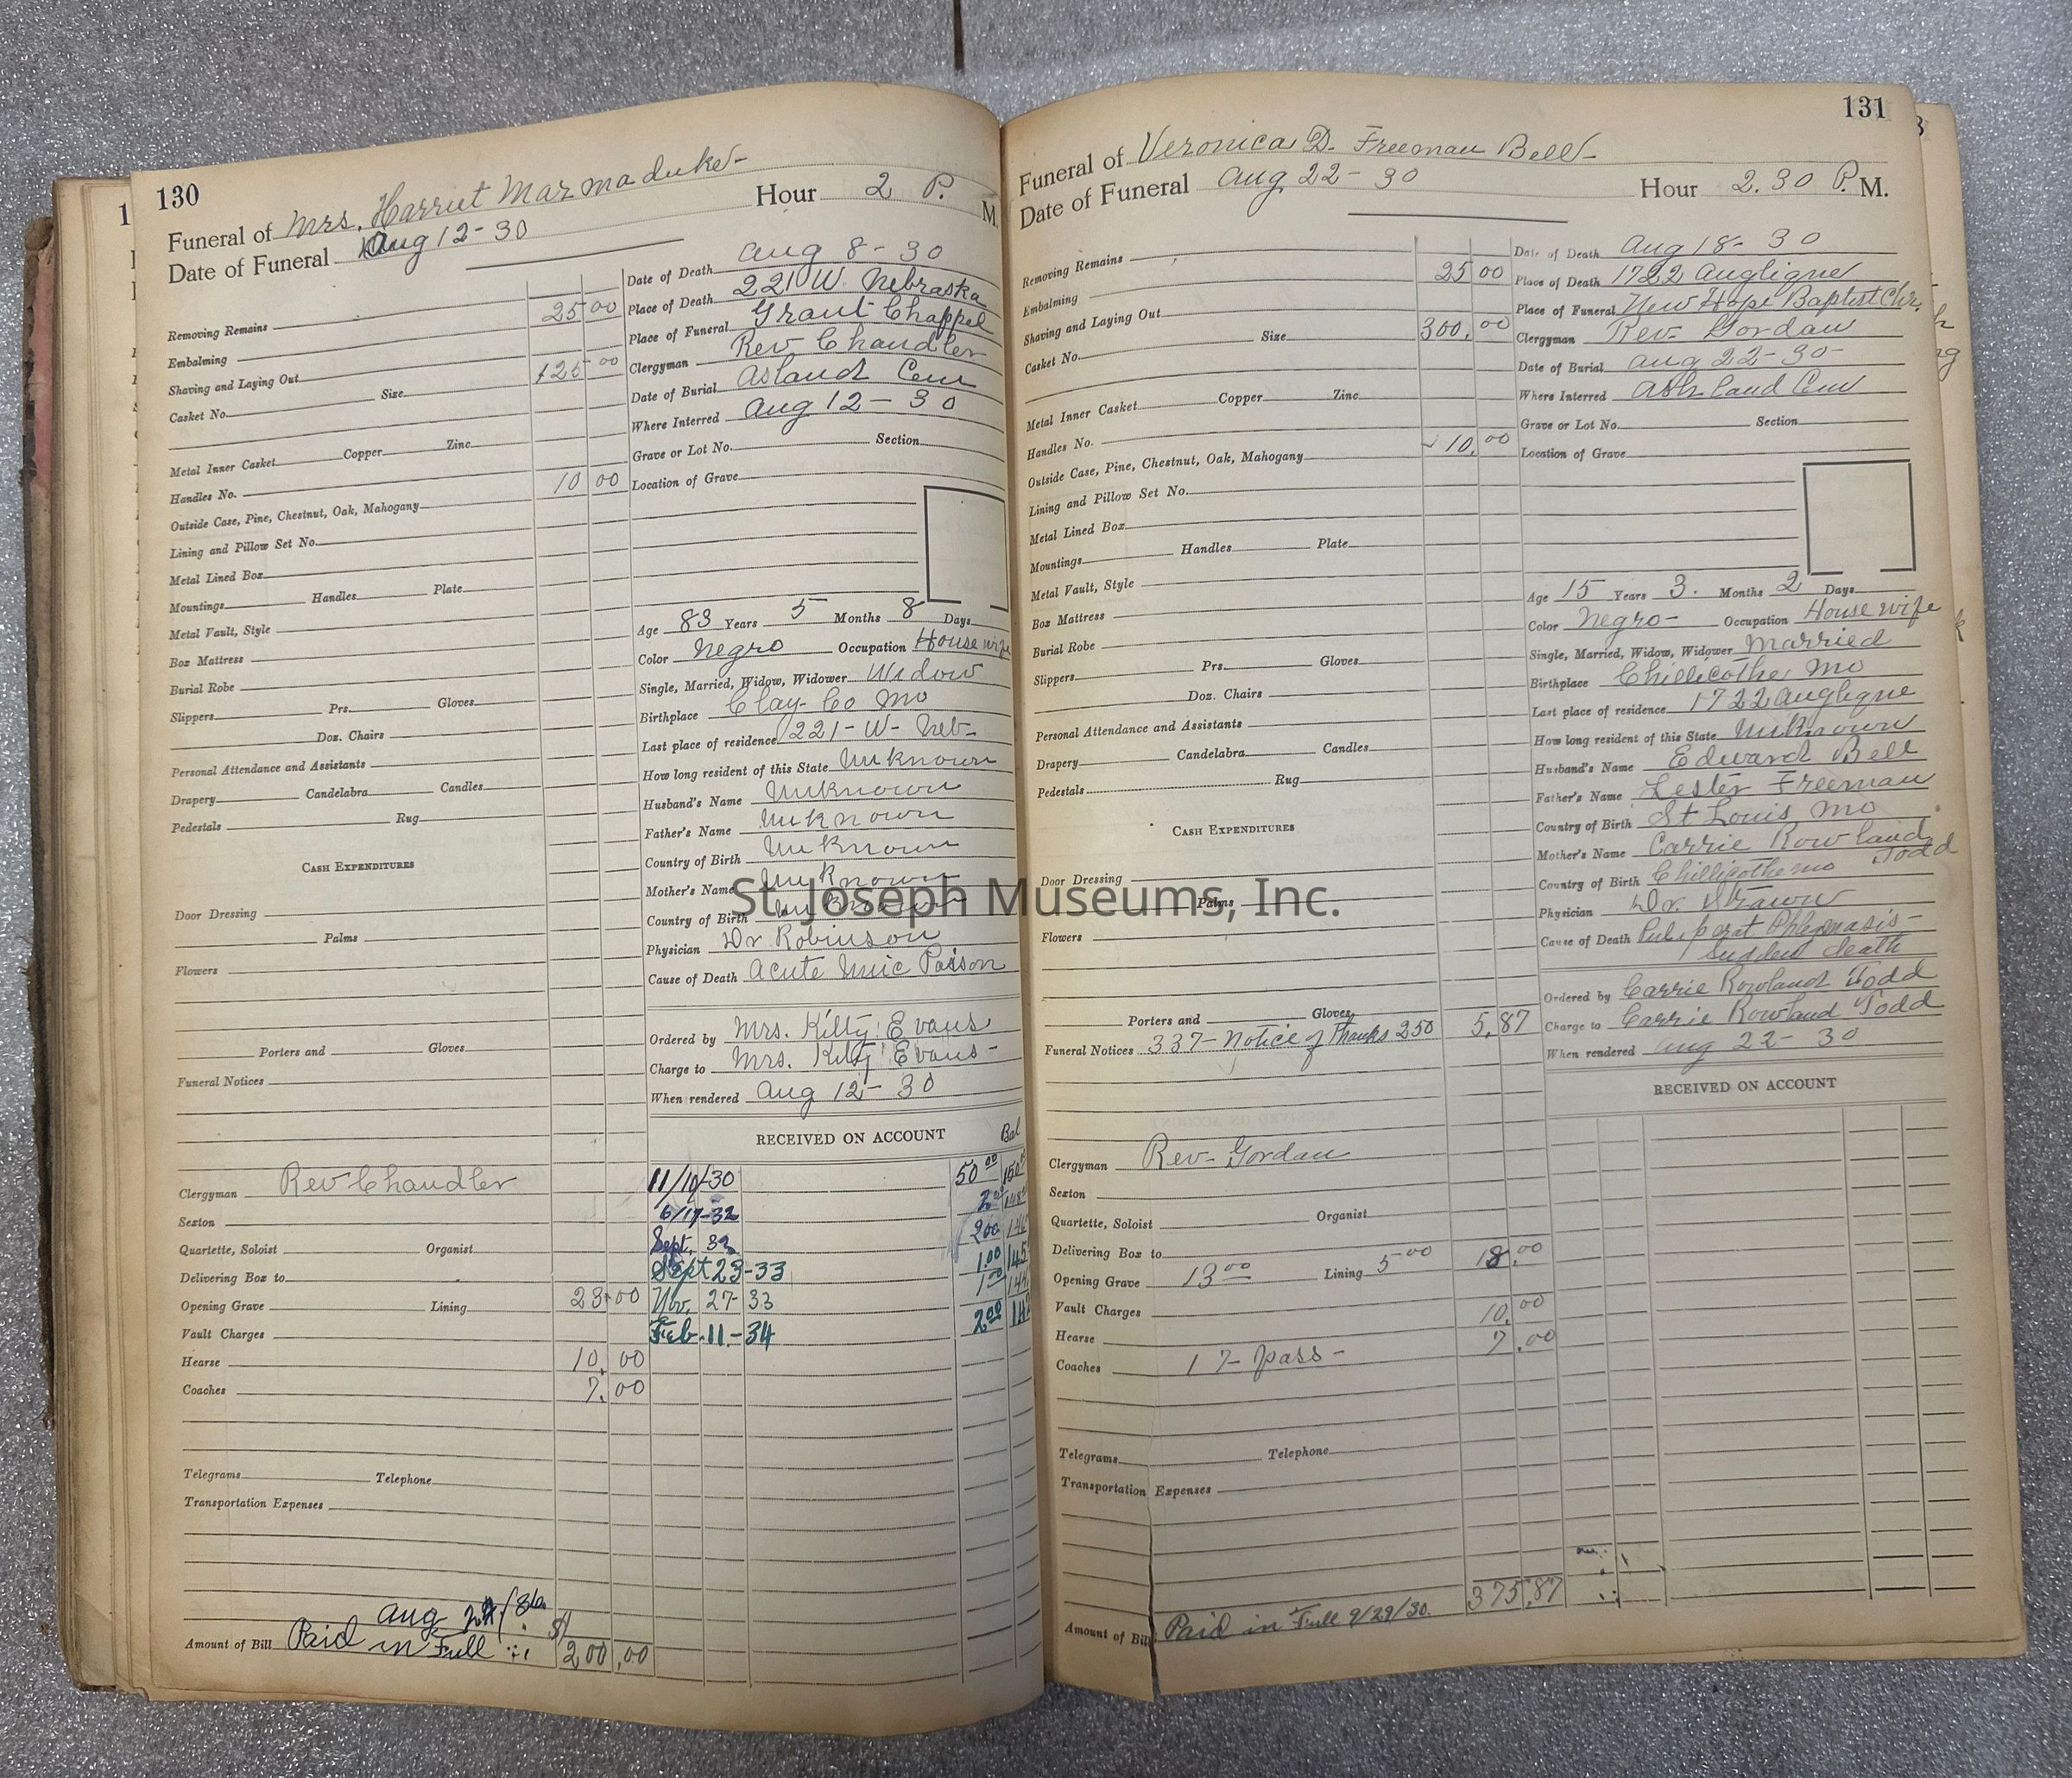 130
Funeral of Mrs. Harriet Marmaduke
Hour 2 P. M.
Date of Funeral Aug 12-30
Removing Remains
Embalming 25 00
Shaving and Laying Out
Casket No. Size 125 00
Metal Inner Casket Copper Zinc
Handles No.
Outside Case, Pine, Chestnut, Oak, Mahogany 10 00
Lining and Pillow Set No.
Metal Lined Box
Mountings Handles Plate
Metal Vault, Style
Box Mattress
Burial Robe
Slippers Prs. Gloves
Doz. Chairs
Personal Attendance and Assistants
Drapery Candelabra Candles
Pedestals Rug
CASH EXPENDITURES
Door Dressing
Palms
Flowers
Porters and Gloves
Funeral Notices
Clergyman Rev Chandler
Sexton
Quartette, Soloist Organist
Delivering Box to
Opening Grave Lining 23 00
Vault Charges
Hearse 10. 00
Coaches 7. 00
Telegrams Telephone
Transportation Expenses
Aug
Amount of Bill Paid in Full 200.00
Date of Death Aug 8-30
Place of Death 221 W. Nebraska
Place of Funeral Grant Chappel
Clergyman Rev Chandler
Date of Burial Asland Cem
Where Interred Aug 12-30
Grave or Lot No. Section
Location of Grave
Age 83 Years 5 Months 8 Days
Color Negro Occupation House wife
Single, Married, Widow, Widower Widow
Birthplace Clay Co Mo
Last place of residence 221-W-Neb-
How long resident of this State Unknown
Husband's Name Unknown
Father's Name Unknown
Country of Birth Unknown
Mother's Name Unknown
Country of Birth Unknown
Physician Dr Robinson
Cause of Death Acute Poison
Ordered by Mrs. Kitty Evans
Charge to Mrs. Kitty Evans-
When rendered Aug 12-30
RECEIVED ON ACCOUNT Bal
11/10/-30 50 00
6/17-32 2 00
Sept. 32 2 00
Sept 23-33 1.00
Nov. 27-33 1 00
Feb-11-34 2 00
131
Funeral of Veronica D. Freeman Bell-
Date of Funeral Aug 22-30 Hour 2.30 P. M.
Removing Remains
Embalming 25 00
Shaving and Laying Out
Casket No. Size 300.00
Metal Inner Casket Copper Zinc
Handles No.
Outside Case, Pine, Chestnut, Oak, Mahogany 10.00
Lining and Pillow Set No.
Metal Lined Box
Mountings Handles Plate
Metal Vault, Style
Box Mattress
Burial Robe
Slippers Prs. Gloves
Doz. Chairs
Personal Attendance and Assistants
Drapery Candelabra Candles
Pedestals Rug
CASH EXPENDITURES
Door Dressing
Palms
Flowers
Porters and Gloves
Funeral Notices 337- Notice of Thanks 250 5.87
Clergyman Rev- Gordan
Sexton
Quartette, Soloist Organist
Delivering Box to
Opening Grave 13 00 Lining 5 00 18.00
Vault Charges
Hearse 10.00
Coaches 1 7-pass- 7.00
Telegrams Telephone
Transportation Expenses
Amount of Bill Paid in Full 9/29/30. 375.87
Date of Death Aug 18-30
Place of Death 1722 Angligue
Place of Funeral New Hope Baptist Chr.
Clergyman Rev. Gordan
Date of Burial Aug 22-30-
Where Interred Ashland Cem
Grave or Lot No. Section
Location of Grave
Age 15 Years 3. Months 2 Days
Color Negro- Occupation House wife
Single, Married, Widow, Widower Married
Birthplace Chillicothe, Mo
Last place of residence 1722 Angligue
How long resident of this State Unknown
Husband's Name Edward Bell
Father's Name Lester Freeman
Country of Birth St Louis Mo
Mother's Name Carrie Rowland Todd
Country of Birth Chillicothe mo
Physician Dr. Strawn
Cause of Death
Sudden death
Ordered by Carrie Rowland Todd
Charge to Carrie Rowland Todd
When rendered Aug 22-30
RECEIVED ON ACCOUNT
St. Joseph Museums, Inc.